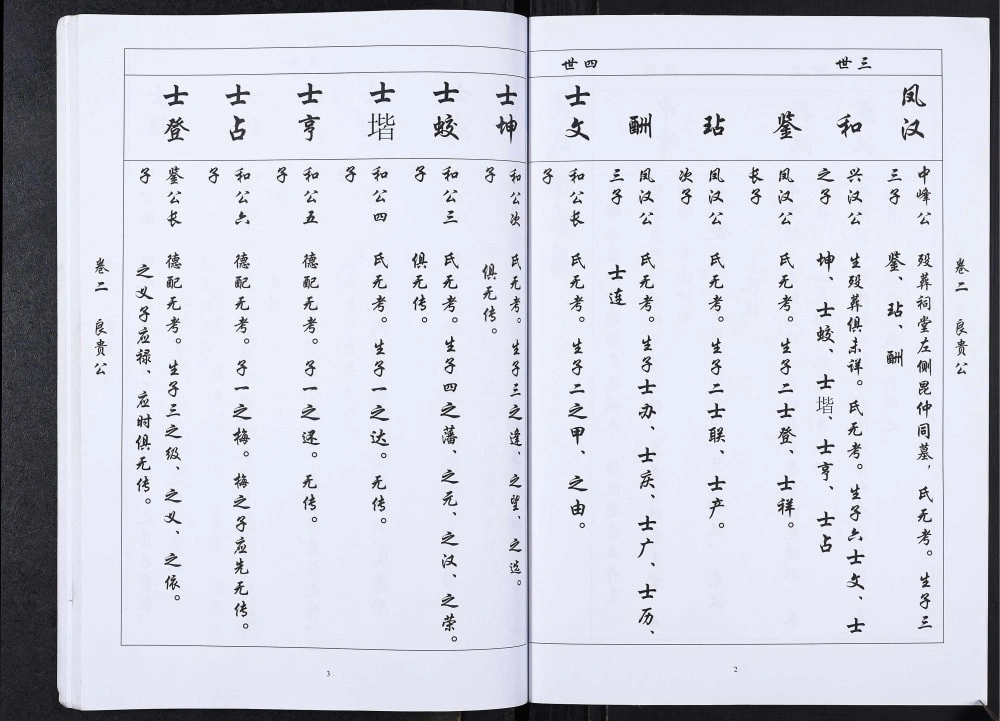 卷二 良贵公
三世
凤汉
中峰公
三子
殁葬祠堂左侧昆仲同墓，氏无考。生子三
鉴、玷、酬
和
兴汉公
之子
生殁葬俱未详。氏无考。生子六士文、士
坤、士蛟、士堦、士亨、士占
鉴
凤汉公
长子
氏无考。生子二士登、士祥。
玷
凤汉公
次子
氏无考。生子二士联、士产。
酬
凤汉公
三子
氏无考。生子士办、士庆、士广、士历、
士连
四世
士文
和公长
子
氏无考。生子二之甲、之由。
2
士坤
和公次
子
氏无考。生子三之逢、之望、之选。
俱无传。
士蛟
和公三
子
氏无考。生子四之藩、之元、之汉、之荣。
俱无传。
士堦
和公四
子
氏无考。生子一之达。无传。
士亨
和公五
子
德配无考。子一之还。无传。
士占
和公六
子
德配无考。子一之梅。梅之子应先无传。
士登
鉴公长
子
德配无考。生子三之级、之义、之依。
之义子应禄、应时俱无传。
卷二 良贵公
3